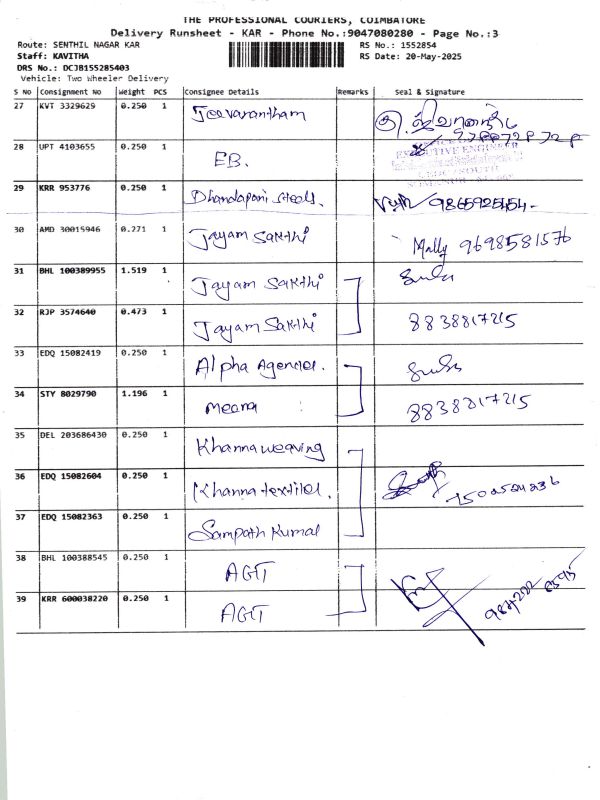 THE PROFESSIONAL COURIERS, COIMBATORE
Delivery Runsheet - KAR - Phone No.:9047080280 - Page No.:3
Route: SENTHIL NAGAR KAR
RS No.: 1552854
Staff: KAVITHA
RS Date: 20-May-2025
DRS No.: DCJB155285403
Vehicle: Two Wheeler Delivery
S No Consignment No Weight PCS Consignee Details Remarks Seal & Signature
27 KVT 3329629 0.250 1 Jeevarantham
28 UPT 4103655 0.250 1 EB.
EXECUTIVE ENGINEER
29 KRR 953776 0.250 1 Dhandapani steels.
30 AMD 30015946 0.271 1 Jayam Sakthi Mally 9698581576
31 BHL 100389955 1.519 1 Jayam Sakthi
32 RJP 3574640 0.473 1 Jayam Sakthi 8838817215
33 EDQ 15082419 0.250 1 Alpha Agencies.
34 STY 8029790 1.196 1 meena 8838817215
35 DEL 203686430 0.250 1 Khanna weaving
36 EDQ 15082604 0.250 1 Khanna textiles. 7502524236
37 EDQ 15082363 0.250 1 Sampath Kumar
38 BHL 100388545 0.250 1 AGT
39 KRR 600038220 0.250 1 AGT